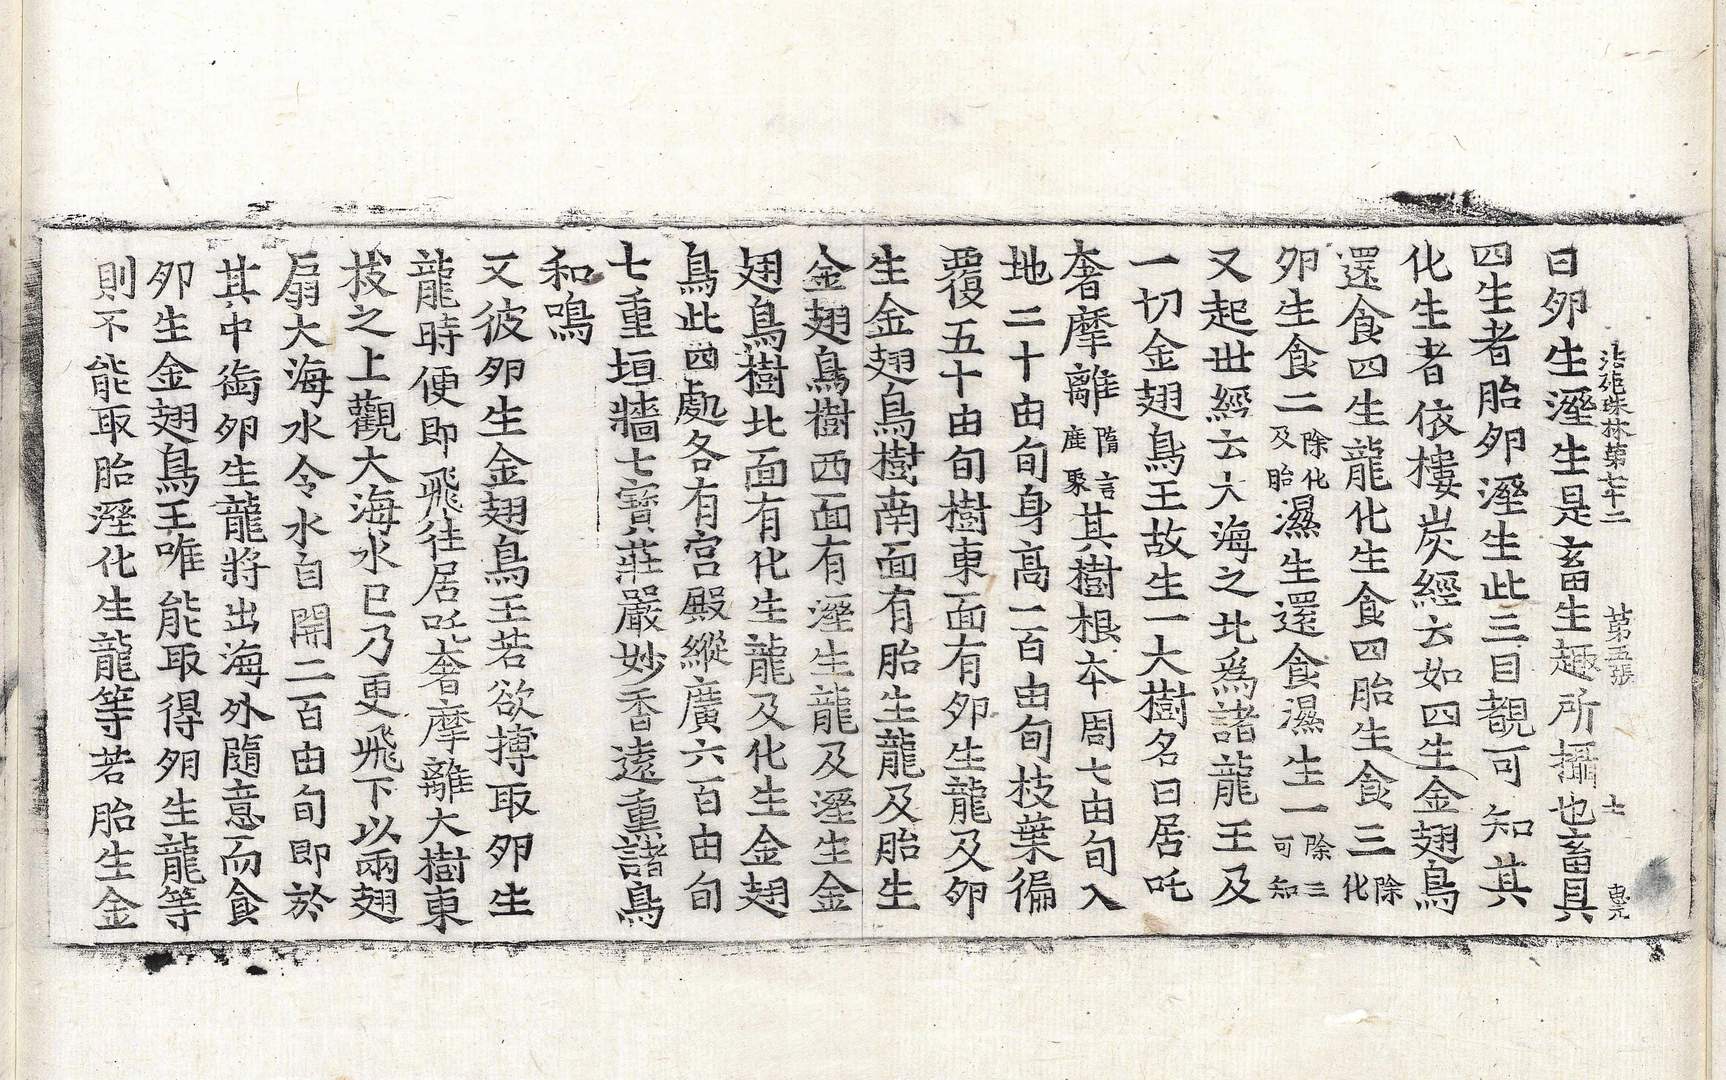 法苑珠林第七十二 第五張 士 惠元
曰夘生溼生是畜生趣所攝也畜具
四生者胎夘溼生此三目覩可知其
化生者依樓炭經云如四生金翅鳥
還食四生龍化生食四胎生食三除化
夘生食二除化及胎濕生還食濕生一除三可知
又起世經云大海之北爲諸龍王及
一切金翅鳥王故生一大樹名曰居吒
奢摩離隋言鹿聚其樹根本周七由旬入
地二十由旬身高一百由旬枝葉徧
覆五十由旬樹東面有夘生龍及夘
生金翅鳥樹南面有胎生龍及胎生
金翅鳥樹西面有溼生龍及溼生金
翅鳥樹北面有化生龍及化生金翅
鳥此四處各有宮殿縱廣六百由旬
七重垣牆七寶莊嚴妙香遠熏諸鳥
和鳴
又彼夘生金翅鳥王若欲搏取夘生
龍時便即飛往居吒奢摩離大樹東
枝之上觀大海水已乃更飛下以兩翅
扇大海水令水自開二百由旬即於
其中銜夘生龍將出海外隨意而食
夘生金翅鳥王唯能取得夘生龍等
則不能取胎溼化生龍等若胎生金